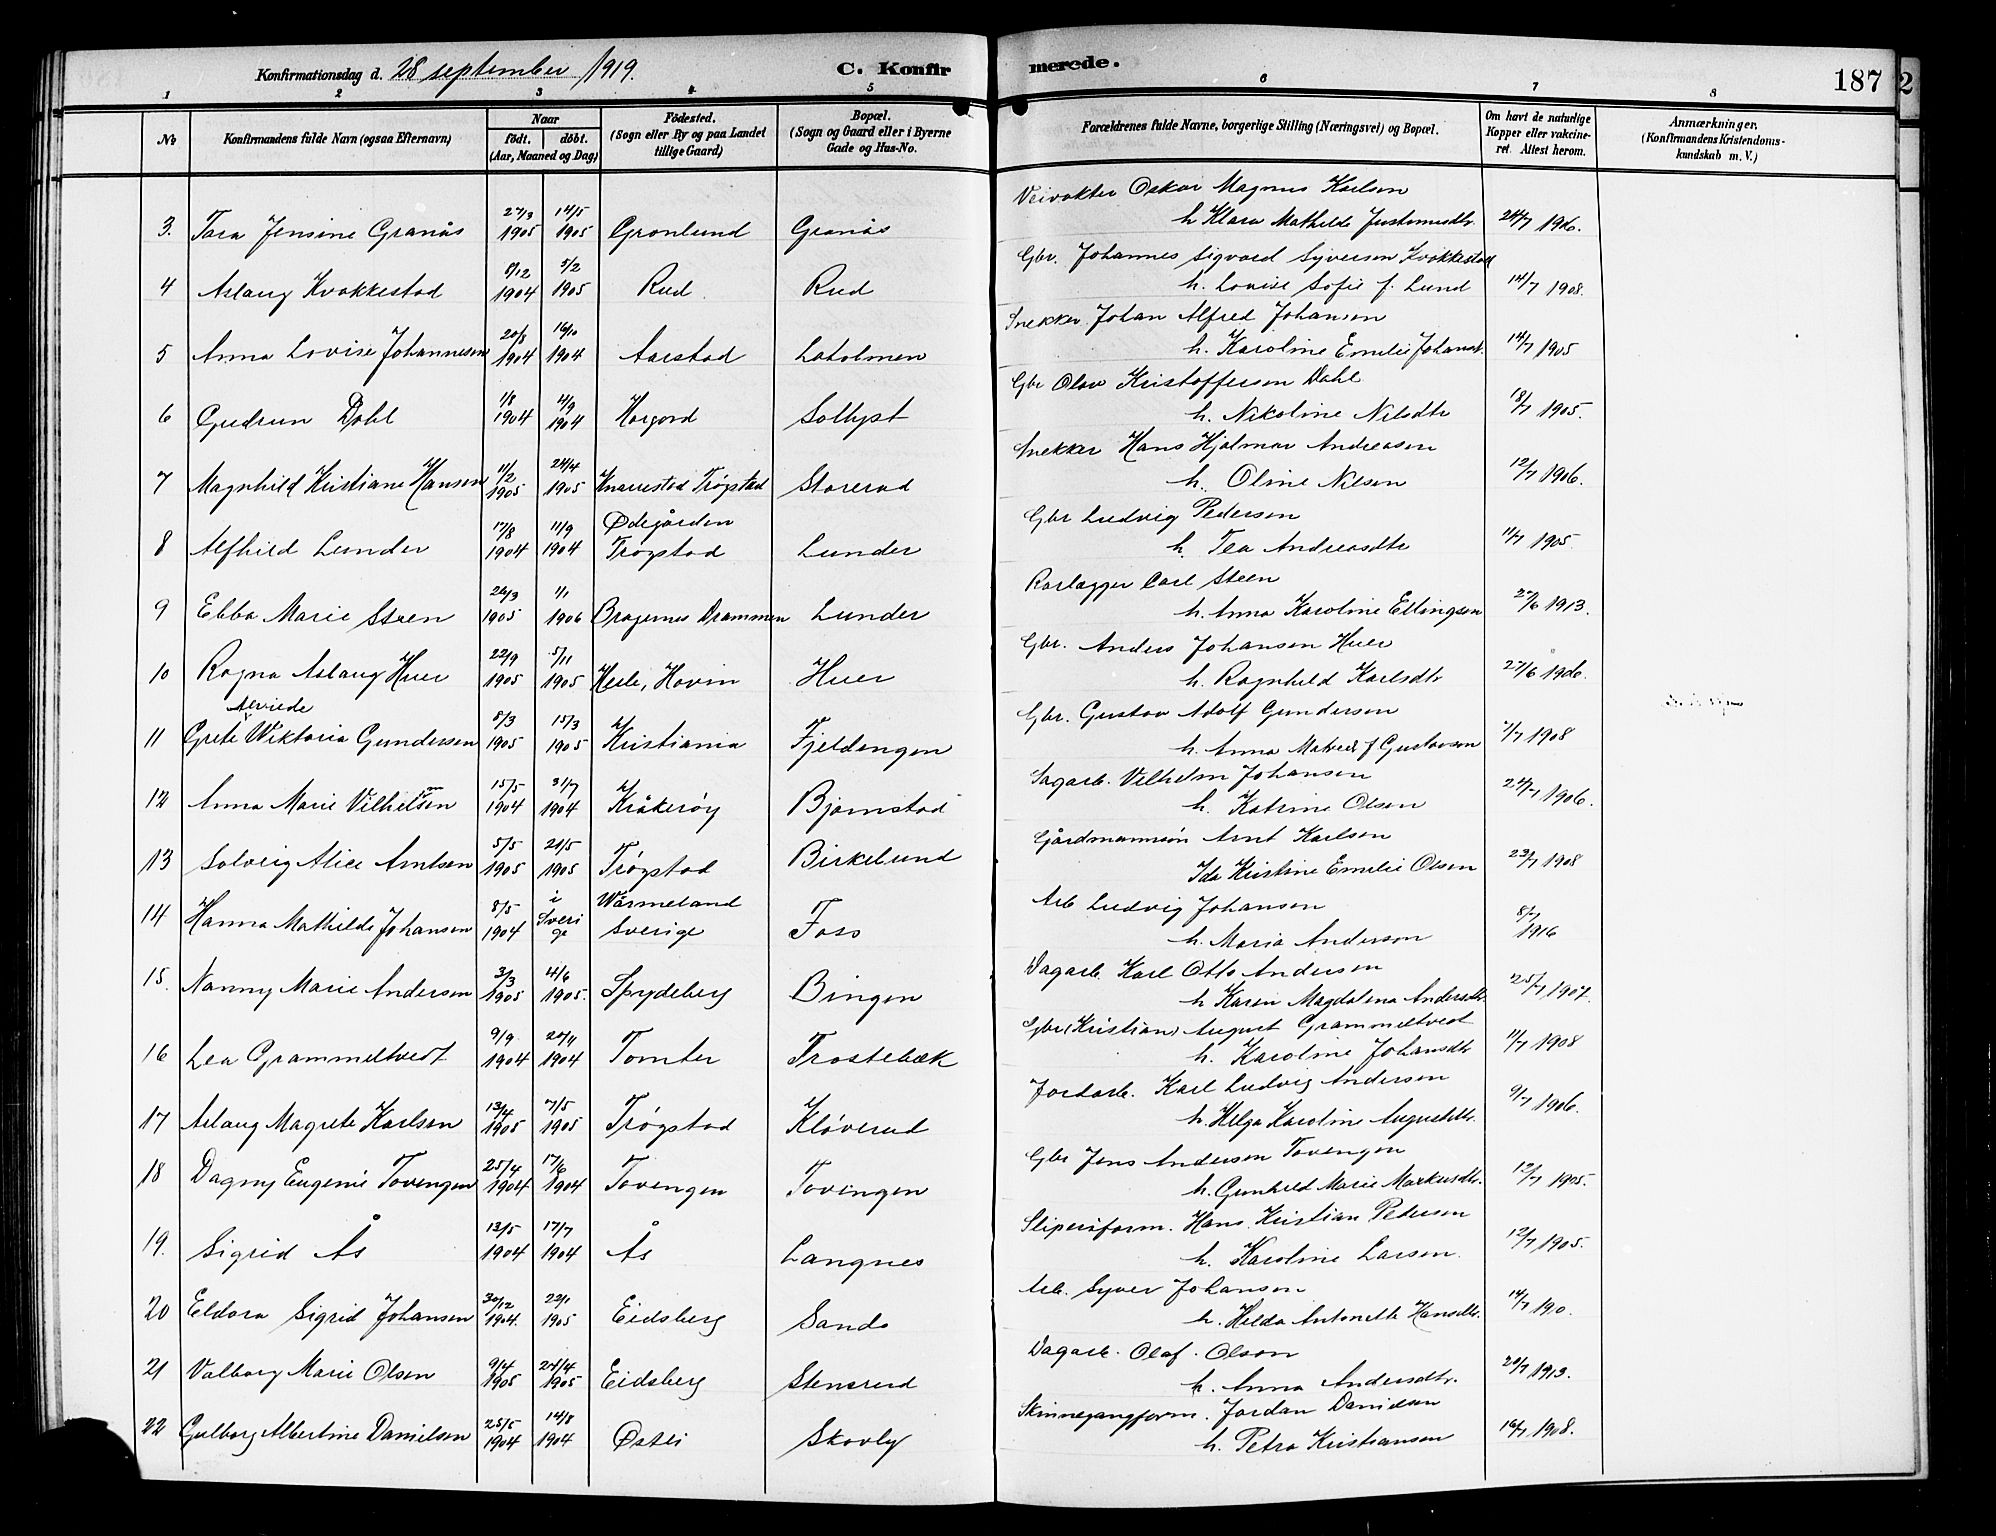 Konfirmationsdag d. 28 september 1919. C. Konfir merede. 187
1 2 3 4 5 6 7 8
No Konfirmandens fulde Navn (ogsaa Efternavn) Naar født. døbt. (Aar, Maaned og Dag) Fødested. (Sogn eller By og paa Landet tillige Gaard) Bopæl. (Sogn og Gaard eller i Byerne Gade og Hus-No. Forældrenes fulde Navne, borgerlige Stilling (Næringsvei) og Bopæl. Om havt de naturlige Kopper eller vakcineret. Attest herom. Anmærkninger. (Konfirmandens Kristendomskundskab m. V.)
Veivokter Oskar Magnus Karlsen
3. Tara Jensine Granås 27/3 1905 14/5 1905 Gronlund Granås h Klara Mathilde Justinusdtr. 24/7 1906.
Gbr. Johannes Sigvard Syversen Kvakkestad
4 Aslaug Kvakkestad 8/12 1904 5/2 1905 Rud Rud h. Lovise Sofie f. Lund 14/7 1908.
Snekker Johan Alfred Johansen
5 Anna Lovise Johannesen 20/8 1904 16/10 1904 Aarstad Laholmen h. Karoline Emilie Johansdt. 14/7 1905
Gbr Olav Kristoffersen Dahl
6 Gudrun Dahl 1/8 1904 4/9 1904 Horgard Solbyst h. Nikoline Nilsdtr 18/7 1905.
Snekker Hans Hjalmar Andreasen
7 Magnhild Kristiane Hansen 11/2 1905 24/4 1905 Knarrestad Trøgstad Storerud h. Oline Nilsen 12/7 1906.
Gbr Ludvig Pedersen
8 Alfhild Lunder 17/8 1904 11/9 1904 Ødegården Trøgstad Lunder h. Tea Andreasdtr 11/7 1905.
Rørlægger Carl Steen
9 Ebba Marie Steen 26/3 1905 1/1 1906 Bragernes Drammen Lunder h. Anna Karoline Ellingsen 27/6 1913.
Gbr. Anders Johansen Huer
10 Ragna Aslaug Huer 22/9 1905 5/11 1905 Hesle, Hovin Huer h. Ragnhild Karlsdtr 27/6 1906.
Gbr. Gustav Adolf Gundersen
11 Grete Wiktoria Gundersen 8/3 1905 15/3 1905 Kristiania Fjeldengen h. Anna f Gustavsen 7/7 1908
Sagarb. Vilhelm Johansen
12 Anna Marie Vilhelmsen 15/5 1904 31/7 1904 Kråkerøy Bjørnstad h. Katrine Olsen 24/7 1906.
Gårdmannsøn Arnt Karlsen
13 Solveig Alice Arntsen 5/5 1905 21/5 1905 Trøgstad Birkelund Ida Kristine Emilie Olsen 23/7 1908
Arb Ludvig Johansen
14 Hanna Mathilde Johansen 8/5 1904 i Sverige Wärmeland Sverige Foss h. Maria Anderson 8/7 1916
Dagarb. Karl Otto Andersen
15. Nanny Marie Andersen 3/3 1905 4/6 1905. Spydeberg Bingen h Karen Magdalena Andersdtr. 25/7 1907.
Gbr (Kristian) August Grammeltvedt
16 Lea Grammeltvedt 9/9 1904 20/11 1904 Tomter Trostebæk h. Karoline Johansdtr 11/7 1908
Jordarb. Karl Ludvig Andersen
17 Aslaug Magrete Karlsen 13/4 1905 7/5 1905 Trøgstad Kløverud h. Helga Karoline Augustdtr. 9/7 1906.
Gbr Jens Andersen Tovengen
18 Dagny Eugenie Tovengen 25/4 1904 17/6 1904 Tovengen Tovengen h. Gunhild Marie Markusdtr. 12/7 1905.
Sliperiform. Hans Kristian Pedersen
19. Sigrid Ås 13/5 1904 17/7 1904 Ås Langnes h. Karoline Larsen. 12/7 1905.
Arb. Syver Johansen
20 Eldora Sigrid Johansen 30/12 1904. 22/1 1905 Eidsberg Sando h. Helda Antonette Hansdtr. 14/7 190.
Dagarb. Olaf. Olson
21 Valborg Marie Olsen 9/4 1905 24/4 1905 Eidsberg Stensrud h. Anna Andersdtr. 20/7 1913.
Skinnegangform. Jordan Danielsen
22 Gulborg Albertine Danielsen 25/5 1904 14/8 1904 Østli Skovly h. Petra Kristiansen 16/7 1908.